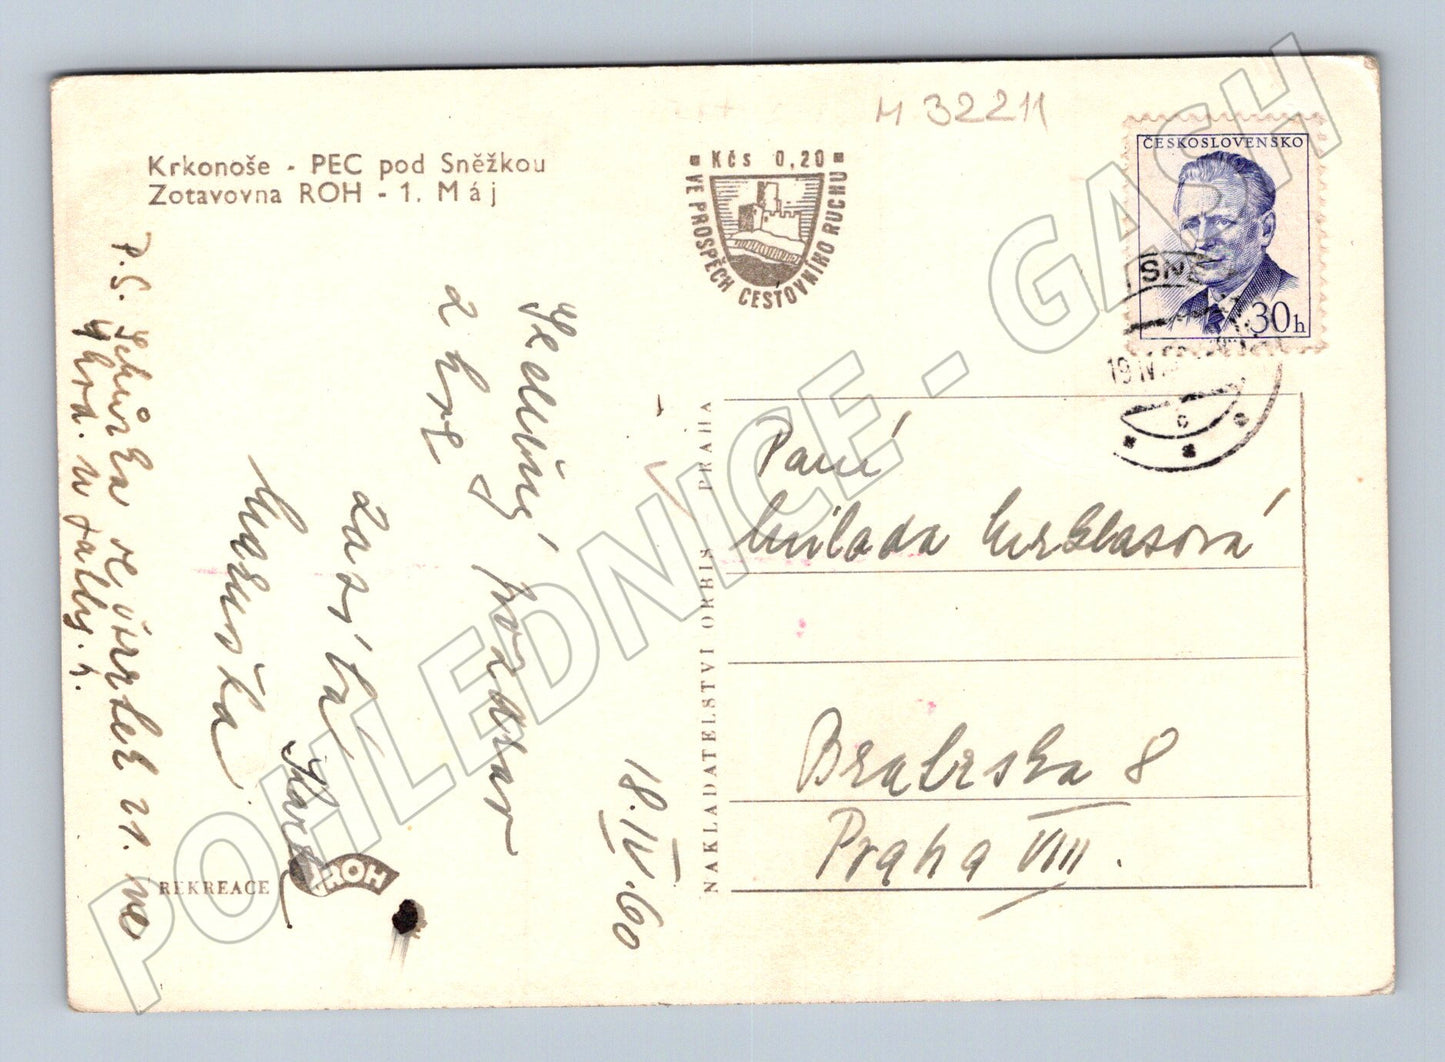 M 32211
Krkonoše - PEC pod Sněžkou
Zotavovna ROH - 1. Máj
Kčs 0,20
VE PROSPĚCH CESTOVNÍHO RUCHU
ČESKOSLOVENSKO
30h
SNĚ
19 IV
18.IV.60
Srdečný pozdrav
z hor
zasílá
Maruška
Karel
P.S. Schůzka ve čtvrtek 21. ve
REKREACE ROH
NAKLADATELSTVÍ ORBIS PRAHA
Paní
Milada Mrklasová
Bratrská 8
Praha VIII.
POHLEDNICE - GASH